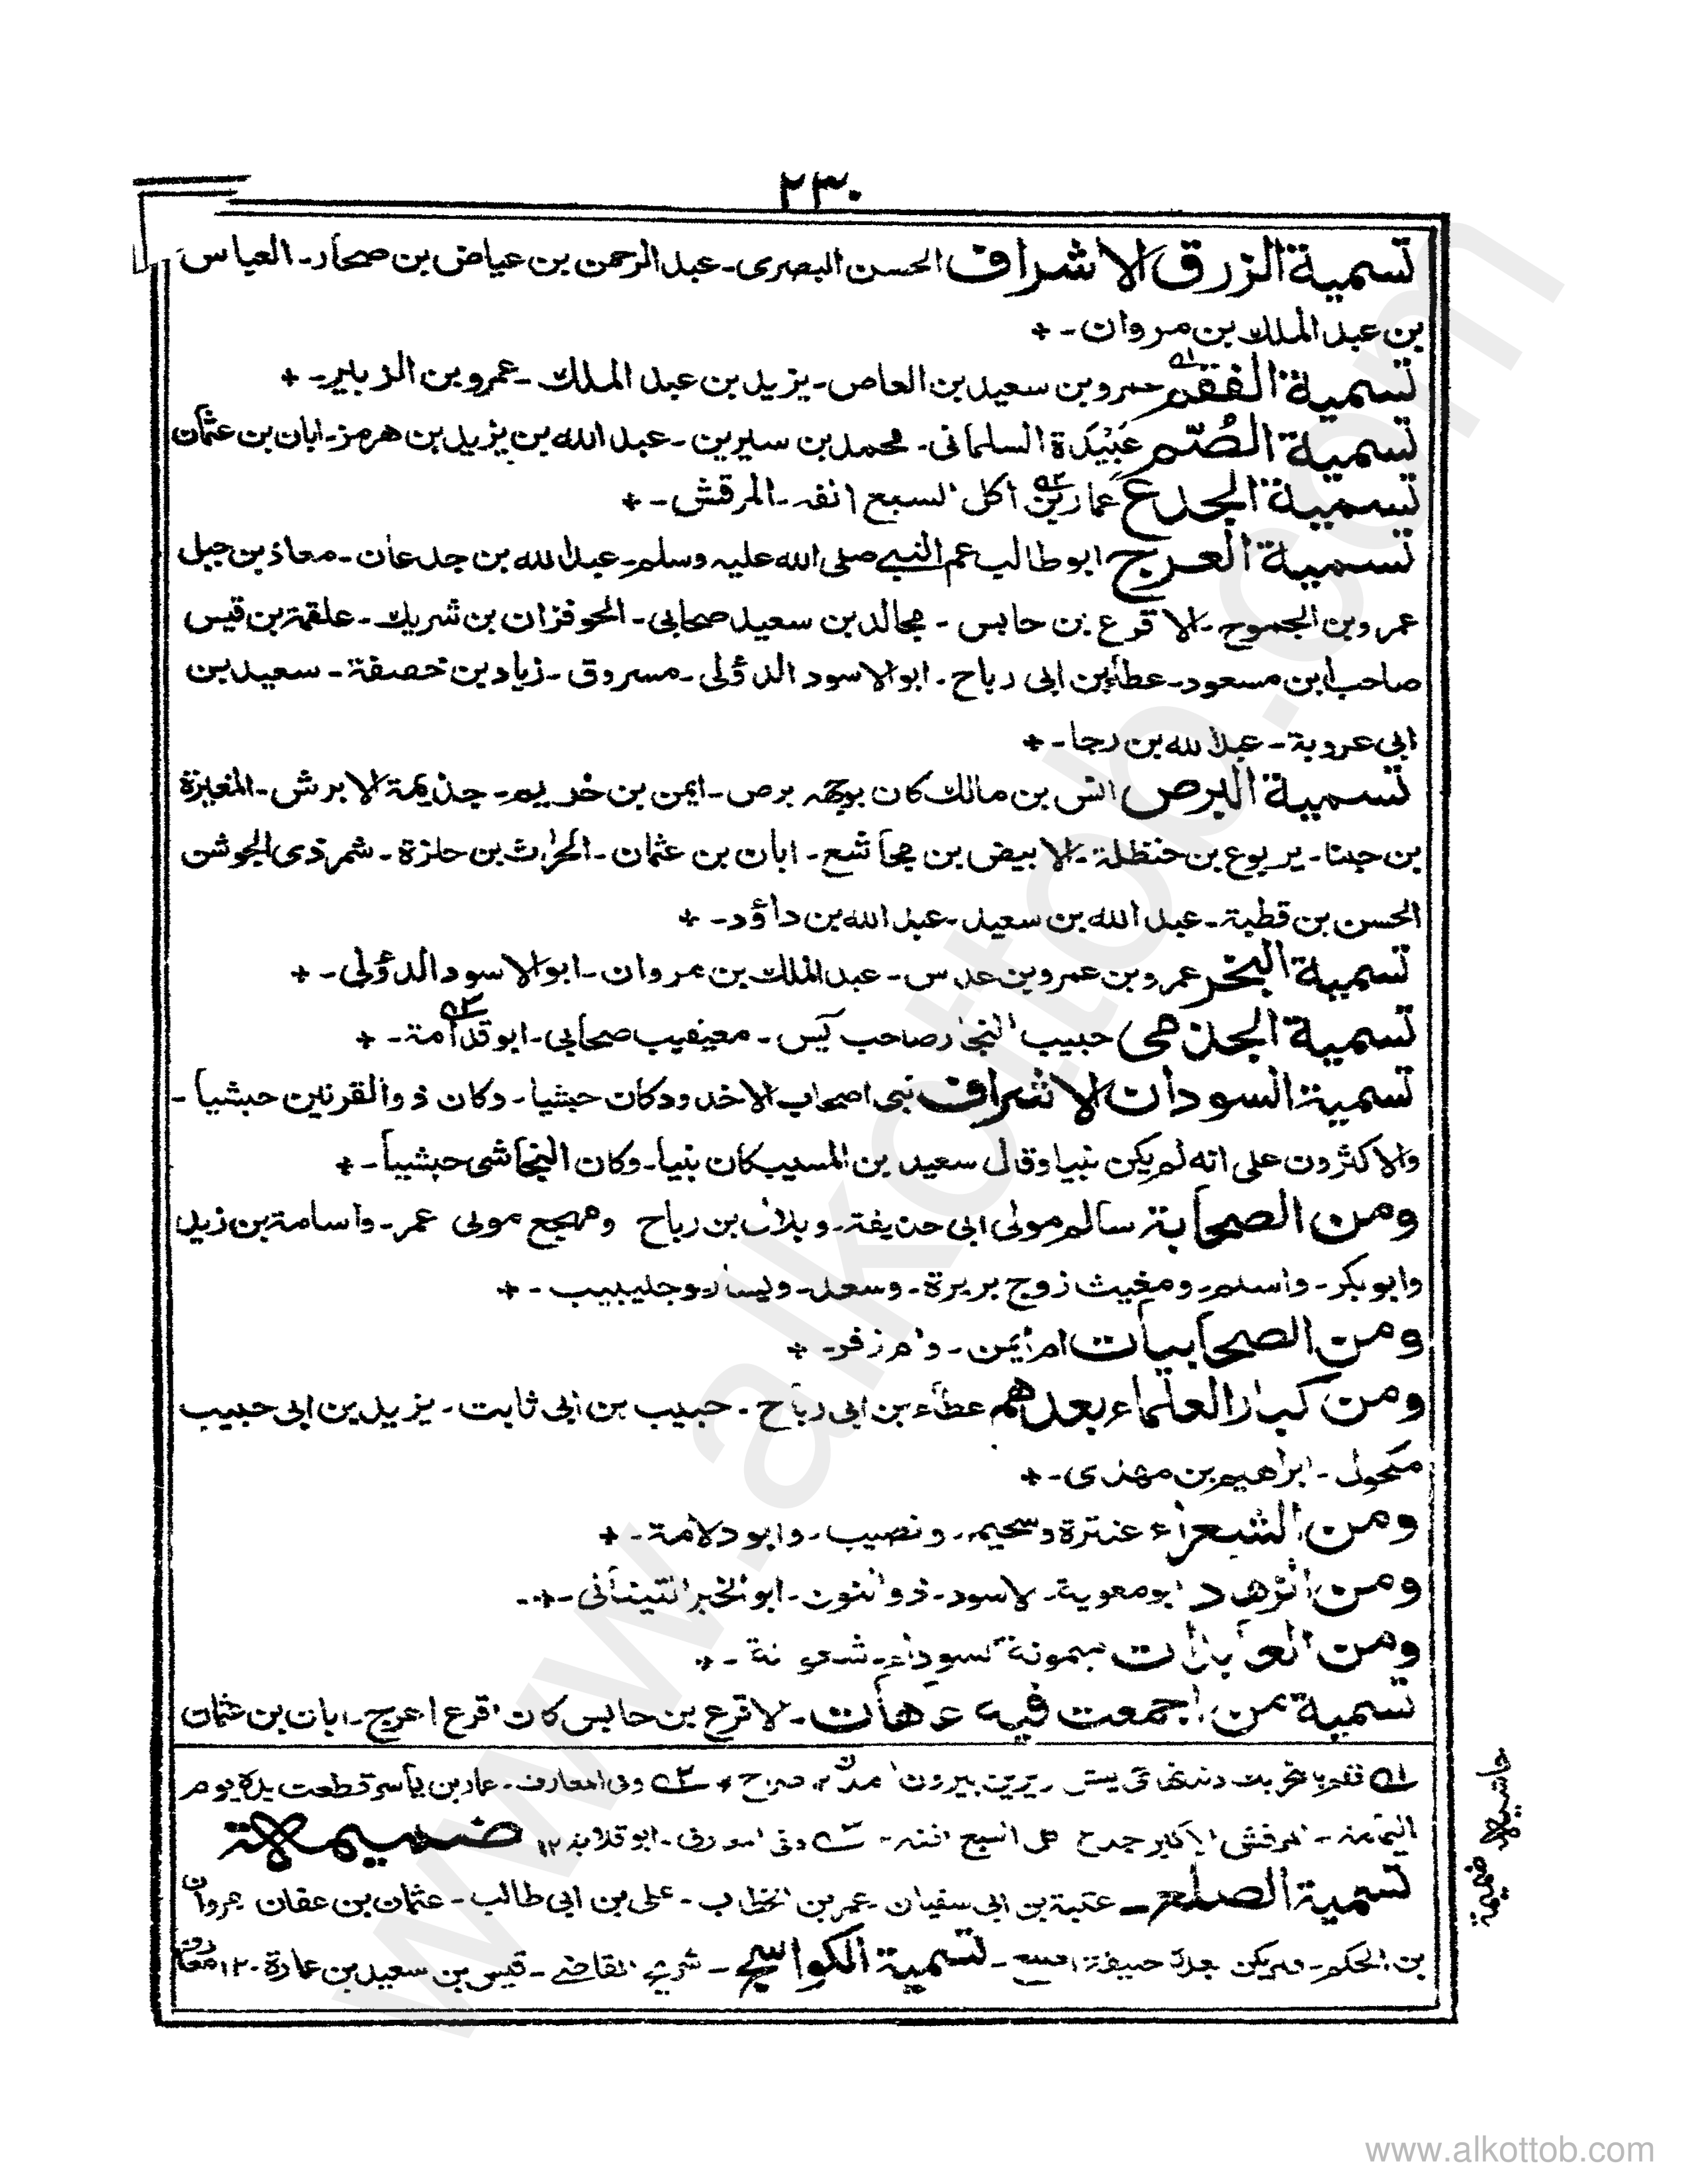 ٢٣٠
تسمية الزرق الاشراف الحسن البصرى ـ عبد الرحمن بن عياض بن صحار ـ العباس
بن عبد الملك بن مروان ـ +
تسمية الفقم عمرو بن سعيد بن العاص ـ يزيد بن عبد الملك ـ عمرو بن الزبير ـ +
تسمية الصُّم عَبِيْدَة السلمانى ـ محمد بن سيرين ـ عبد الله بن يزيد بن هرمز ـ ابان بن عثمان
تسمية الجدع عمار بن اكل السبع انفه ـ المرقش ـ +
تسمية العرج ابو طالب عم النبى صلى الله عليه وسلم ـ عبد الله بن جدعان ـ معاذ بن جبل
عمرو بن الجموح ـ الاقرع بن حابس ـ مجالد بن سعيد صحابى ـ الحوفزان بن شريك ـ علقمة بن قيس
صاحب ابن مسعود ـ عطاء بن ابى رباح ـ ابو الاسود الدؤلى ـ مسروق ـ زياد بن خصفة ـ سعيد بن
ابى عروبة ـ عبد الله بن رجا ـ +
تسمية البرص انس بن مالك كان بوجهه برص ـ ايمن بن خريم ـ جذيمة الابرش ـ المغيرة
بن حبنا ـ يربوع بن حنظلة ـ الابيض بن مجاشع ـ ابان بن عثمان ـ الحرث بن حلزة ـ شمر ذى الجوشن
الحسن بن قطبة ـ عبد الله بن سعيد ـ عبد الله بن داؤد ـ +
تسمية البخر عمرو بن عمرو بن عدس ـ عبد الملك بن مروان ـ ابو الاسود الدؤلى ـ +
تسمية الجذمى حبيب النجار صاحب يٰس ـ معيقيب صحابى ـ ابو قدامة ـ +
تسمية السودان الاشراف نبى اصحاب الاخدود كان حبشيا ـ وكان ذو القرنين حبشيا ـ
والاكثرون على انه لم يكن نبيا وقال سعيد بن المسيب كان نبيا ـ وكان النجاشى حبشيا ـ +
ومن الصحابة سالم مولى ابى حذيفة ـ وبلال بن رباح ومهجع مولى عمر ـ واسامة بن زيد
وابو بكر ـ واسلم ـ ومغيث زوج بريرة ـ وسعد ـ ويسار ـ وجليبيب ـ +
ومن الصحابيات ام ايمن ـ وام زفر ـ +
ومن كبار العلماء بعدهم عطاء بن ابى رباح ـ حبيب بن ابى ثابت ـ يزيد بن ابى حبيب
مكحول ـ ابراهيم بن مهدى ـ +
ومن الشعراء عنترة وسحيم ـ ونصيب ـ وابو دلامة ـ +
ومن الزهاد ابو معوية الاسود ـ ذو النون ـ ابو الخير التينانى ـ +
ومن العابدات ميمونة السوداء ـ شعونة ـ +
تسمية من اجمعت فيه عاهات ـ الاقرع بن حابس كان اقرع اعرج ـ ابان بن عثمان
وفى المعارف ـ عمار بن ياسر قطعت يده يوم
اليمامة ـ المرقش الاكبر جدع اكل السبع انفه ـ وفى المعارف ـ ابو قلابه ١٢ ضميمة
تسمية الصلع ـ عتبة بن ابى سفيان ـ عمر بن الخطاب ـ على بن ابى طالب ـ عثمان بن عفان ـ مروان
بن الحكم ـ ولم يكن بعده خليفة اصلع ـ تسمية الكواسج ـ شريح القاضى ـ قيس بن سعيد بن عبادة ١٢ معارف
حاشية ضميمة
www.alkottob.com
www.alkottob.com